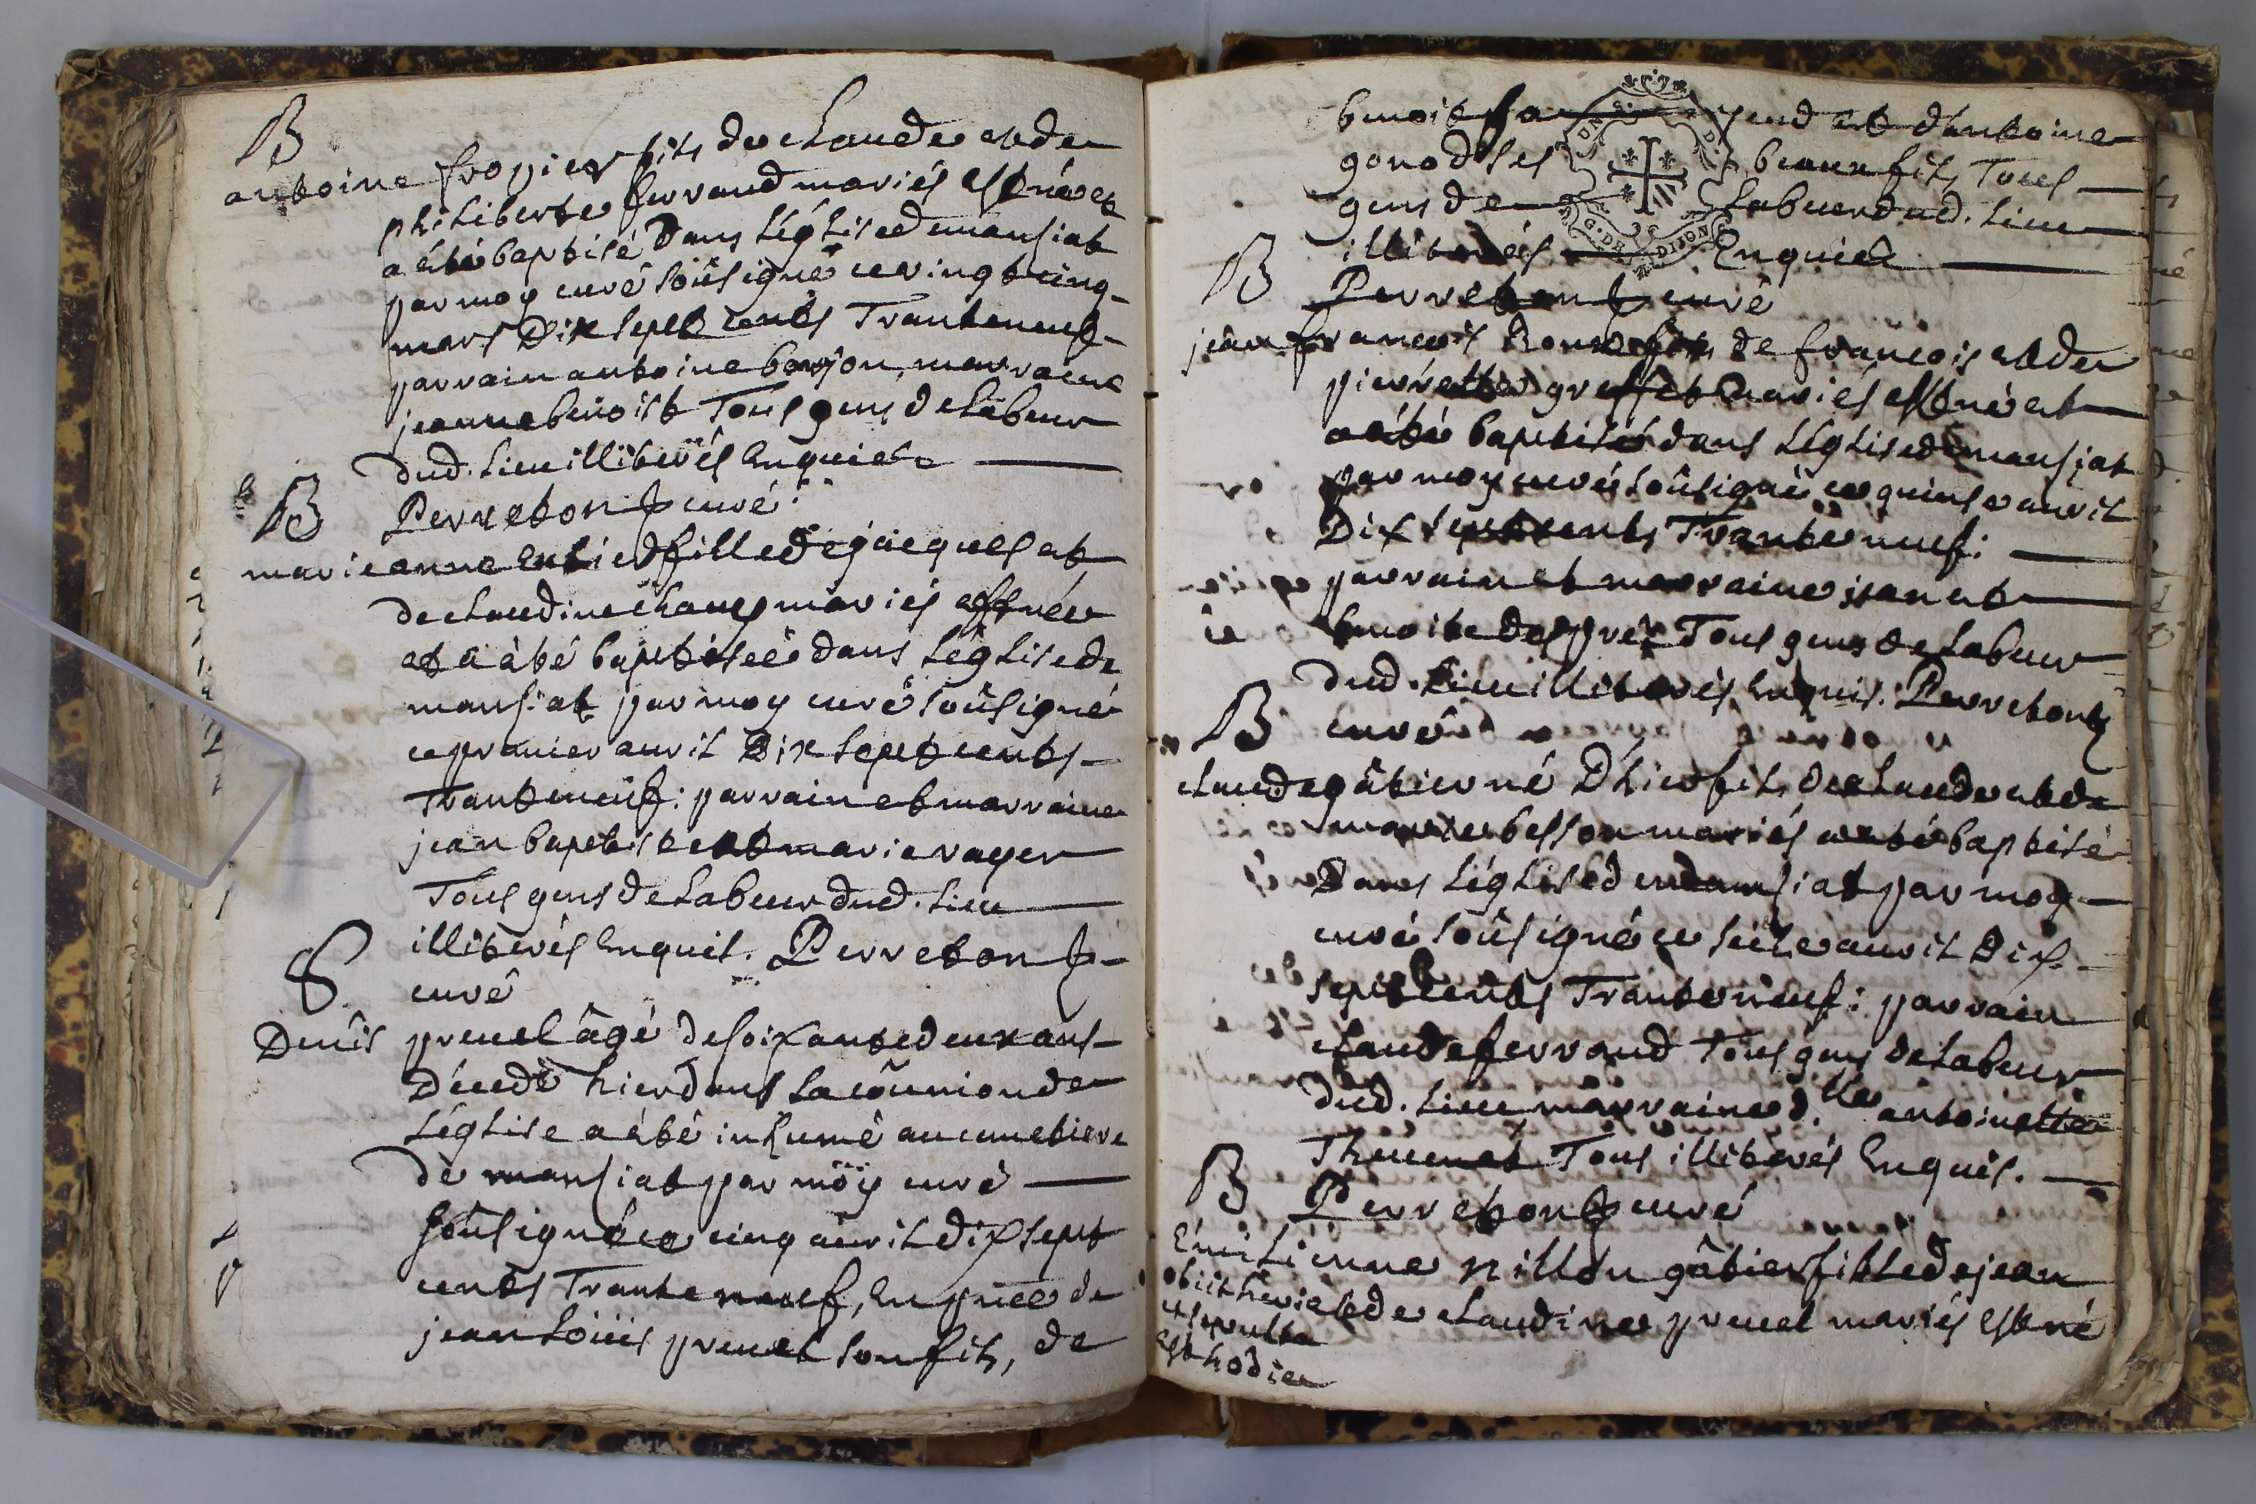 B
antoine fropier fils de claude et de
philiberte ferrand mariés est né et
a été baptisé dans l'église de mansiat
par moy curé soûsigné ce vingt cinq
mars Dix sept cents Trante neuf
parrain antoine borjon, marraine
jeanne benoist Tous gens de labeur
dud. lieu illiterés Enquis
B Perreton f curé
marie anne fille de jacques et
de claudine champ mariés est née
et a été baptisée dans l'église de
mansiat par moy curé soûsigné
ce premier avril Dix sept cents
Trante neuf: parrain et marraine
jean baptiste et marie rayer
Tous gens de labeur dud. lieu
illiterés Enquis. Perreton f
S. curé
Denis pruel âgé de soixante deux ans
Décedé hier dans la coûnion de
l'église a été inhumé au cimetiere
de mansiat par moÿ curé
soûsigné ce cinq avril dix sept
cents Trante neuf, En pñce de
jean loüis pruel son fils, de
benoit et d'antoine
gonod ses beaux fils, Tous
gens de labeur dud. lieu
illiterés Enquis
B Perreton f curé
jean francois fils de francois et de
pierrette greffet mariés est né et
a été baptisé dans l'église de mansiat
par moy curé soûsigné ce quinse avril
Dix sept cents Trante neuf:
parrain et marraine jean et
benoite desprez Tous gens de labeur
dud. lieu illiterés Enquis. Perreton f
B curé
claude gâtier né D'hier fils de claude et de
marie besson mariés a été baptisé
Dans l'église de mansiat par moy
curé soûsigné ce seize avril Dix
sept cents Trante neuf: parrain
claude ferrand Tous gens de labeur
dud. lieu marraine d.lle antoinette
Thevenet Tous illiterés Enquis.
B Perreton f curé
Emilienne pillon gâtier fille de jean
obiit heri et de claudine pruel mariés est né
et sepulta
est hodie
G. DE DIJON